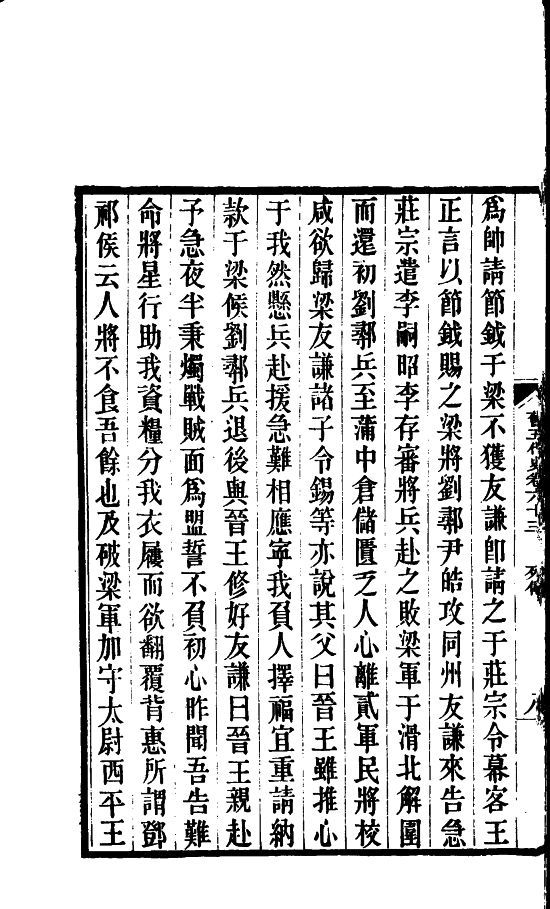 舊五代史卷六十三 列傳 八
爲帥請節鉞于梁不獲友謙卽請之于莊宗令幕客王
正言以節鉞賜之梁將劉鄩尹皓攻同州友謙來告急
莊宗遣李嗣昭李存審將兵赴之敗梁軍于滑北解圍
而還初劉鄩兵至蒲中倉儲匱乏人心離貳軍民將校
咸欲歸梁友謙諸子令錫等亦說其父曰晉王雖推心
于我然懸兵赴援急難相應寧我負人擇福宜重請納
款于梁候劉鄩兵退後與晉王修好友謙曰晉王親赴
予急夜半秉燭戰賊面爲盟誓不負初心昨聞吾告難
命將星行助我資糧分我衣屨而欲翻覆背惠所謂鄧
祁侯云人將不食吾餘也及破梁軍加守太尉西平王